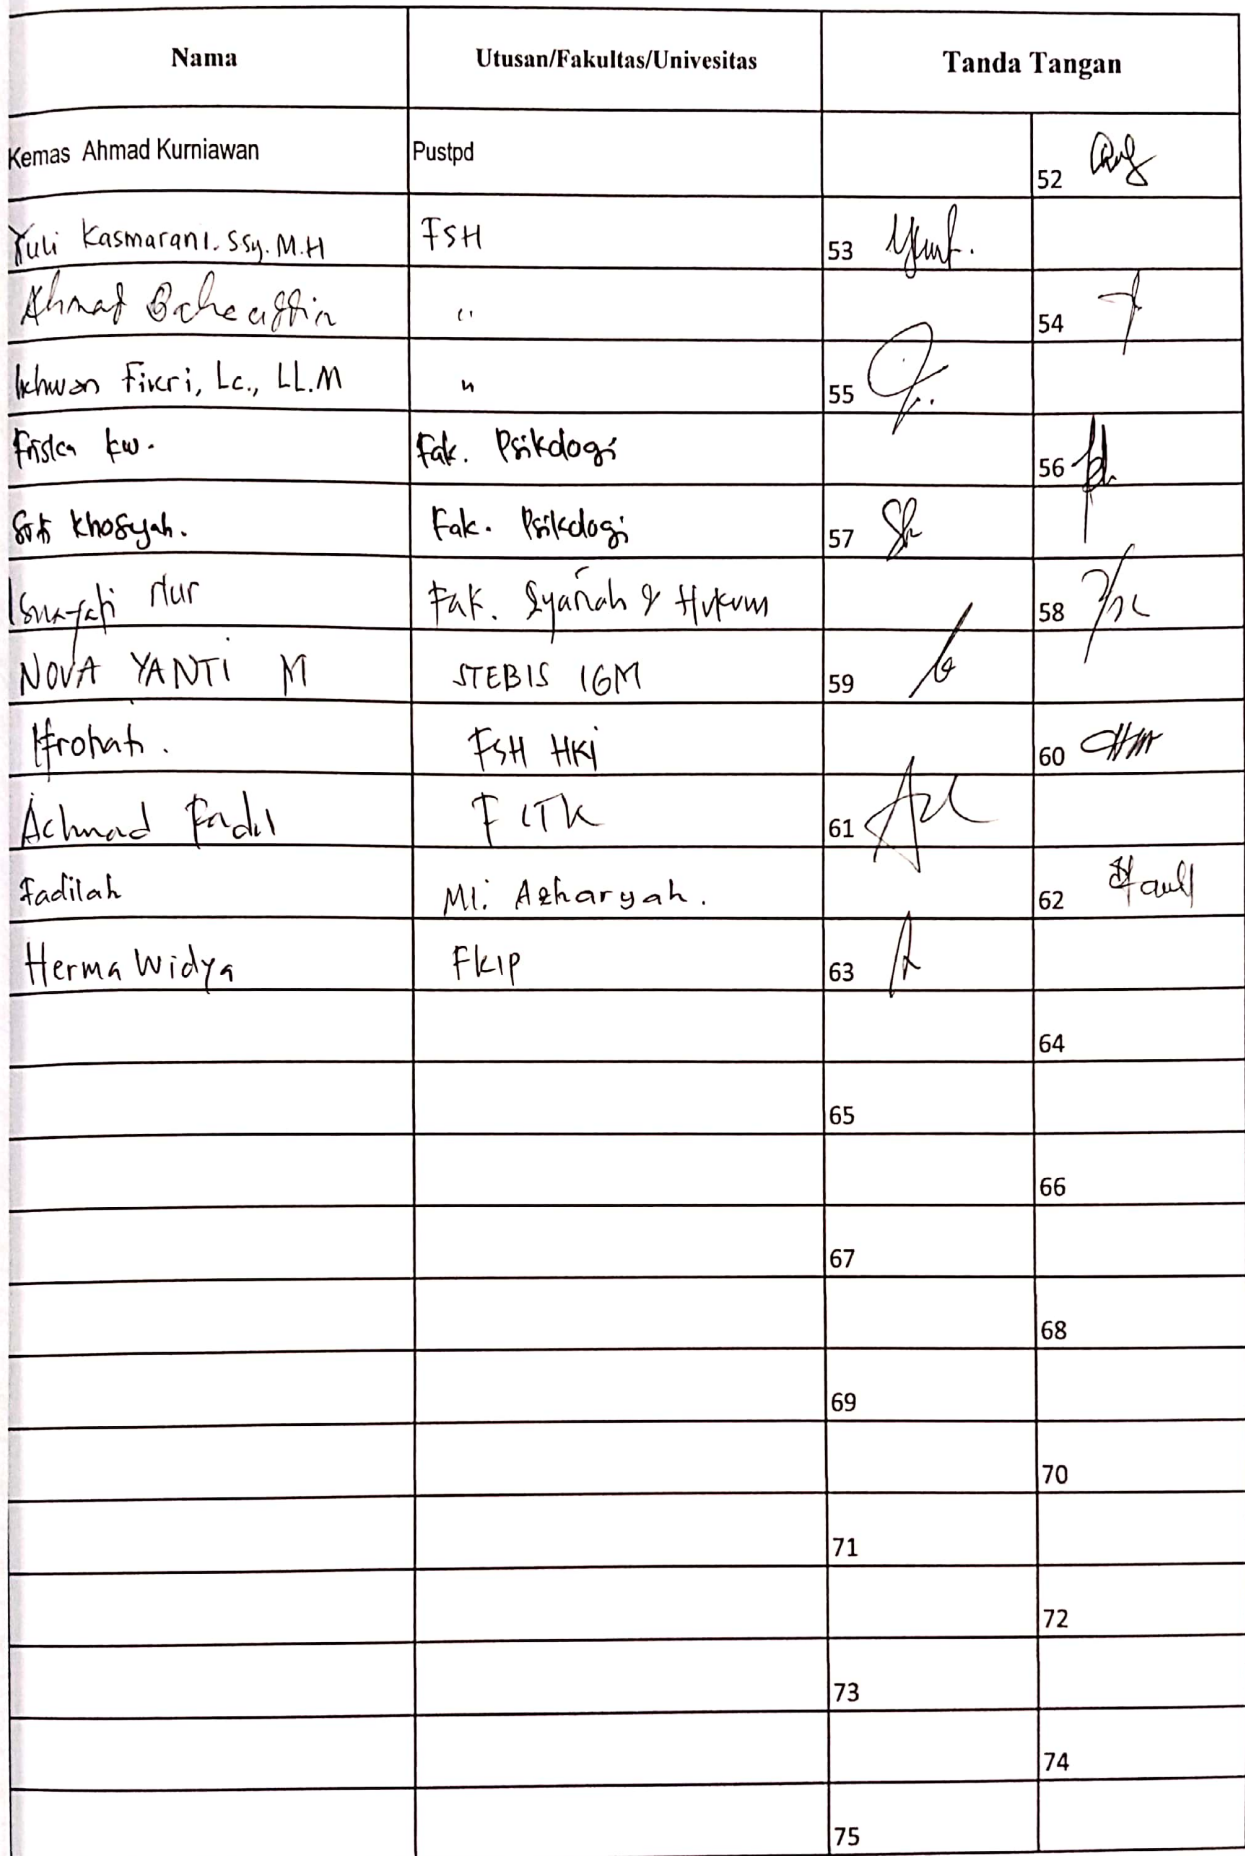 Nama Utusan/Fakultas/Univesitas Tanda Tangan
Kemas Ahmad Kurniawan Pustpd 52
Yuli Kasmarani. SSy. M.H FSH 53
Ahmad " 54
Ikhwan Fikri, Lc., LL.M " 55
Friska kw. Fak. Psikologi 56
Siti Khosyah. Fak. Psikologi 57
Nur Fak. Syariah & Hukum 58
NOVA YANTI M STEBIS IGM 59
Ifrohati. FSH HKI 60
Achmad Fadil FITK 61
Fadilah MI. Azharyah. 62
Herma Widya FKIP 63
64
65
66
67
68
69
70
71
72
73
74
75